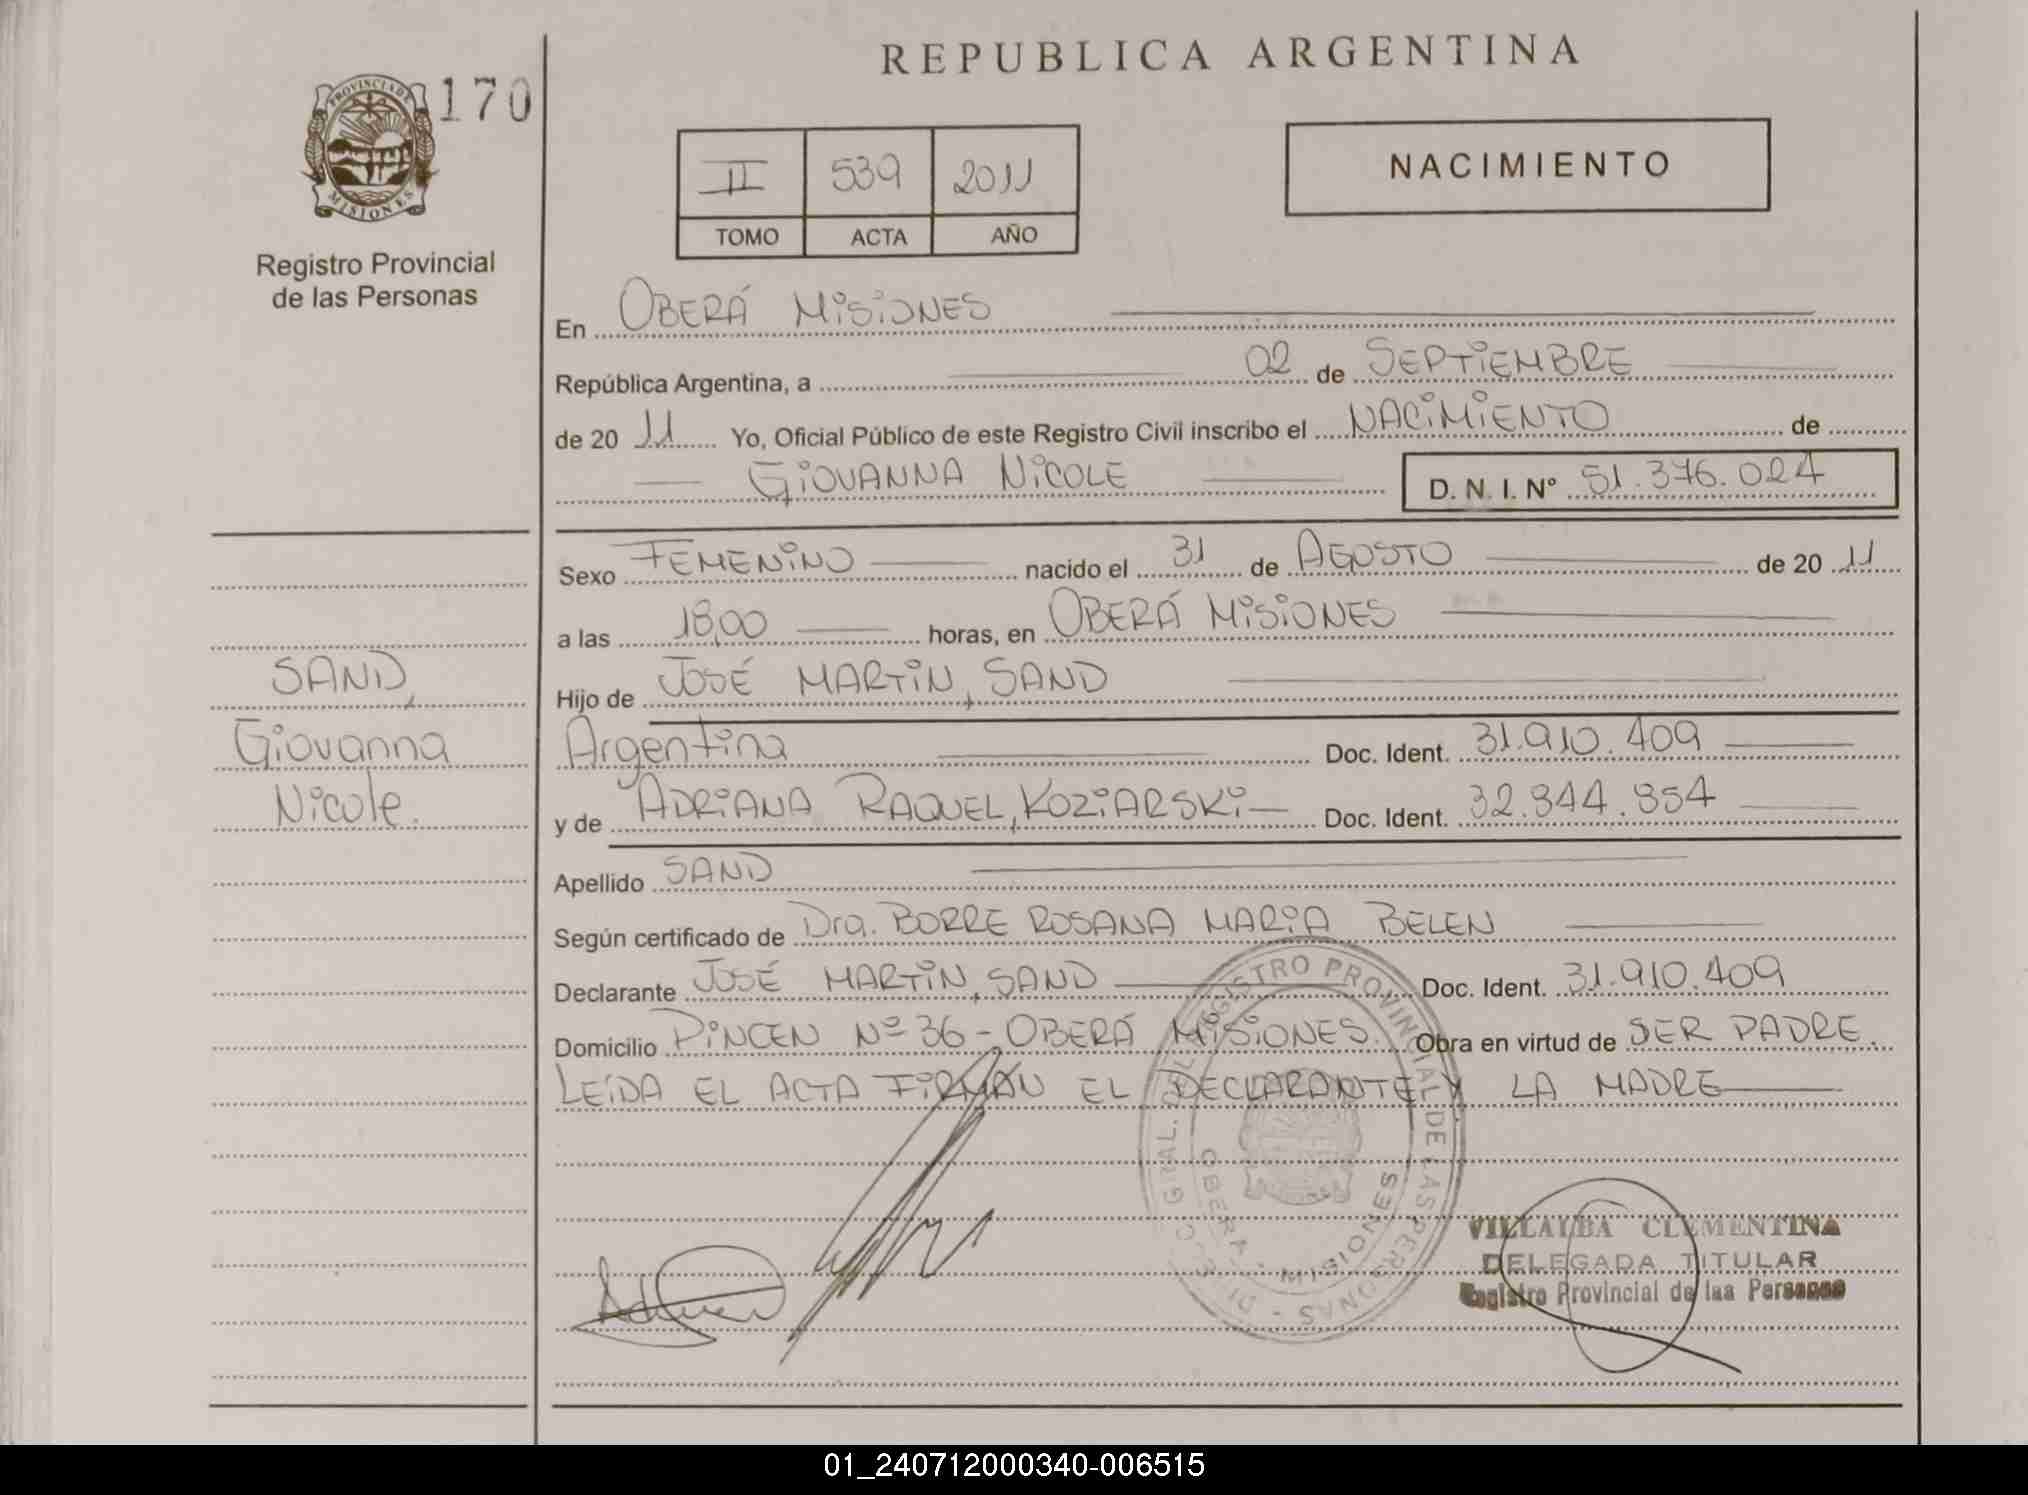 REPUBLICA ARGENTINA
PROVINCIA DE MISIONES
170
Registro Provincial
de las Personas
II 539 2011
TOMO ACTA AÑO
NACIMIENTO
En OBERÁ MISIONES
República Argentina, a 02 de SEPTIEMBRE
de 2011 Yo, Oficial Público de este Registro Civil inscribo el NACIMIENTO de
GIOVANNA NICOLE D. N. I. Nº 51.376.024
Sexo FEMENINO nacido el 31 de AGOSTO de 2011
a las 18,00 horas, en OBERÁ MISIONES
Hijo de JOSÉ MARTIN, SAND
Argentina Doc. Ident. 31.910.409
y de ADRIANA RAQUEL, KOZIARSKI Doc. Ident. 32.844.854
Apellido SAND
Según certificado de Dra. BORRE ROSANA MARIA BELEN
Declarante JOSÉ MARTIN, SAND Doc. Ident. 31.910.409
Domicilio PINCEN Nº 36 - OBERÁ MISIONES. Obra en virtud de SER PADRE.
LEÍDA EL ACTA FIRMAN EL DECLARANTE Y LA MADRE
SAND,
Giovanna
Nicole.
DIREC. GRAL. DEL REGISTRO PROVINCIAL DE LAS PERSONAS
OBERA - MISIONES
VILLALBA CLEMENTINA
DELEGADA TITULAR
Registro Provincial de las Personas
01_240712000340-006515